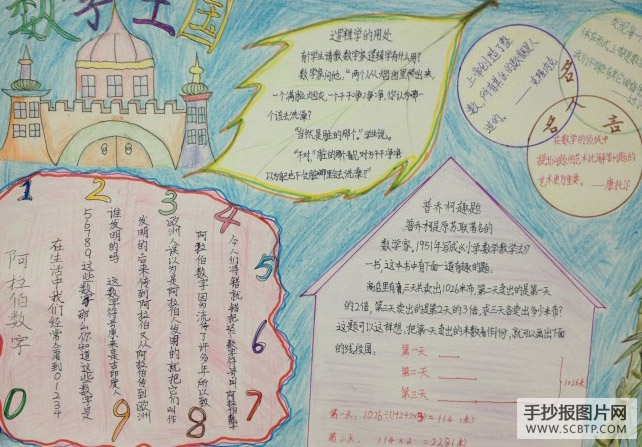 数学王国
逻辑学的用处
有学生请教数学家逻辑学有什么用？
数学家问他，“两个人从烟囱里爬出来，
一个满脸烟灰，一个干干净净，你认为哪一
个该去洗澡？”
“当然是脏的那个。”学生说。
“不对，脏的那个看见对方干干净净
以为自己也不会脏哪里会去洗澡？”
上帝创造了整
数，所有其余的数都是人
造的。
名人名言
在数学的领域中
提出问题的艺术比解答问题的
艺术更为重要。——康托尔
1
2
3
4
5
6
7
8
9
0
阿拉伯数字
在生活中我们经常会看到01234
56789这些数字那么你知道这些数字是
谁发明的吗 这数字符号原来是古印度人
发明的后来传到阿拉伯又从阿拉伯传到欧洲
欧洲人误以为是阿拉伯人发明的就把它们叫作
阿拉伯数字因为流传了许多年所以
普乔柯趣题
普乔柯是原苏联著名的
数学家，1951年写成《小学数学教学法》
一书，这本书中有下面一道有趣的题：
商店里有三天共卖出1026米布，第二天卖出的是第一天
的2倍，第三天卖出的是第2天的3倍，求三天各卖出多少米布？
这题可以这样想：把第一天卖出的米数看作1份，就可以画出下面
的线段图：
第一天
第二天
第三天
1026米
第二天：114×2=228(米)
手抄报图片网
WWW.SCBTP.COM